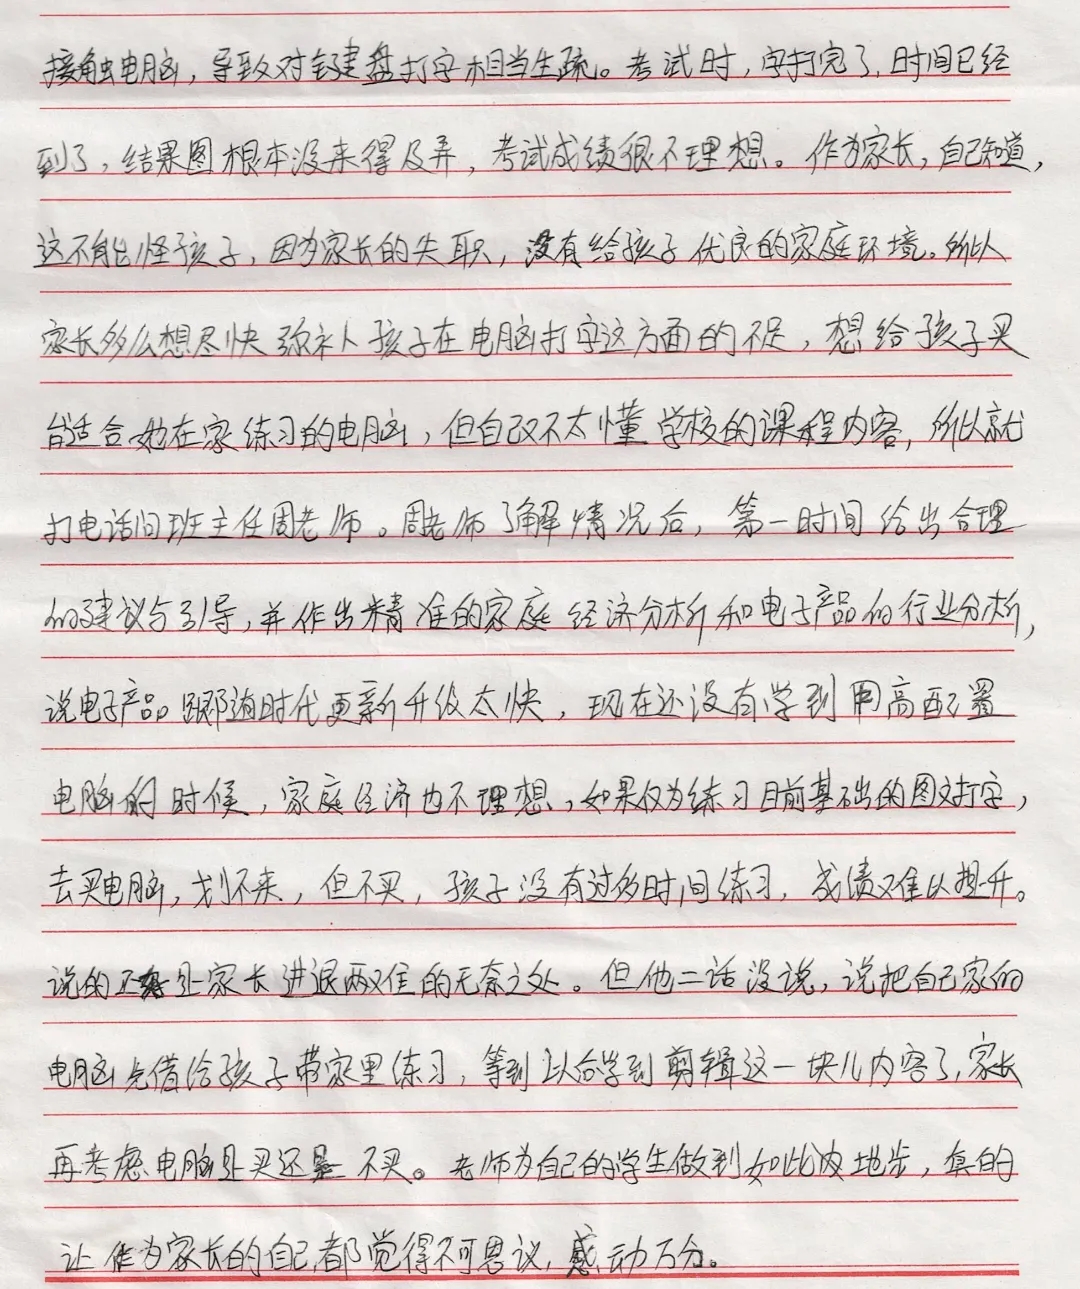 接触电脑，导致对键盘打字相当生疏。考试时，字打完了，时间已经
到了，结果图根本没来得及弄，考试成绩很不理想。作为家长，自己知道，
这不能怪孩子，因为家长的失职，没有给孩子优良的家庭环境。所以
家长多么想尽快弥补孩子在电脑打字这方面的不足，想给孩子买
台适合她在家练习的电脑，但自己又不太懂学校的课程内容，所以就
打电话问班主任周老师。周老师了解情况后，第一时间给出合理
的建议与引导，并作出精准的家庭经济分析和电子产品的行业分析，
说电子产品跟随时代更新升级太快，现在还没有学到用高配置
电脑的时候，家庭经济也不理想，如果仅为练习目前基础的图文打字，
去买电脑，划不来，但不买，孩子没有过多时间练习，成绩难以提升。
说的正是家长进退两难的无奈之处。但他二话没说，说把自己家的
电脑先借给孩子带家里练习，等到以后学到剪辑这一块儿内容了，家长
再考虑电脑是买还是不买。老师为自己的学生做到如此这地步，真的
让作为家长的自己都觉得不可思议，感动万分。